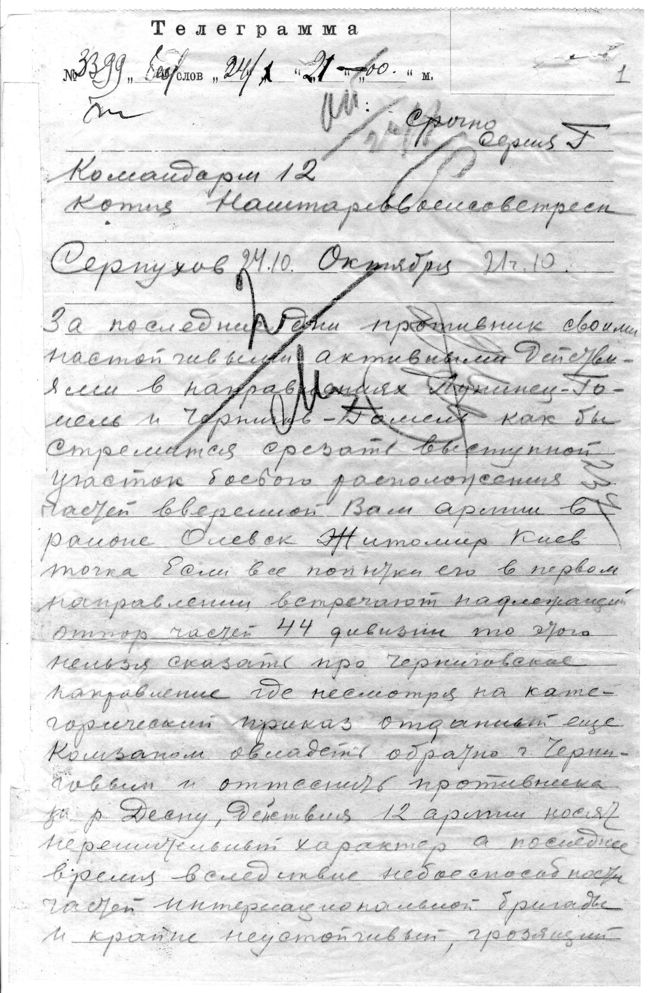 Телеграмма
№ 3399 „ слов „ 24/X “ 21 “ — „ 00. “ м.
1
Срочно
Серия Г
Командарм 12
Копия Наштареввоенсоветресп
Серпухов 24.10. Октября 21ч.10.
За последние дни противник своими
настойчивыми активными действи-
ями в направлениях Лунинец-Го-
мель и Чернигов-Гомель как бы
стремится срезать выступной
участок боевого расположения
частей вверенной Вам армии в
районе Олевск Житомир Киев
точка Если все попытки его в первом
направлении встречают надлежащий
отпор частей 44 дивизии то этого
нельзя сказать про черниговское
направление где несмотря на кате-
горический приказ отданный еще
Комзапом овладеть обратно г. Черни-
говым и оттеснить противника
за р Десну, Действия 12 армии носят
нерешительный характер а последнее
время вследствие небоеспособности
частей интернациональной бригады
и крайне неустойчивый, грозящий